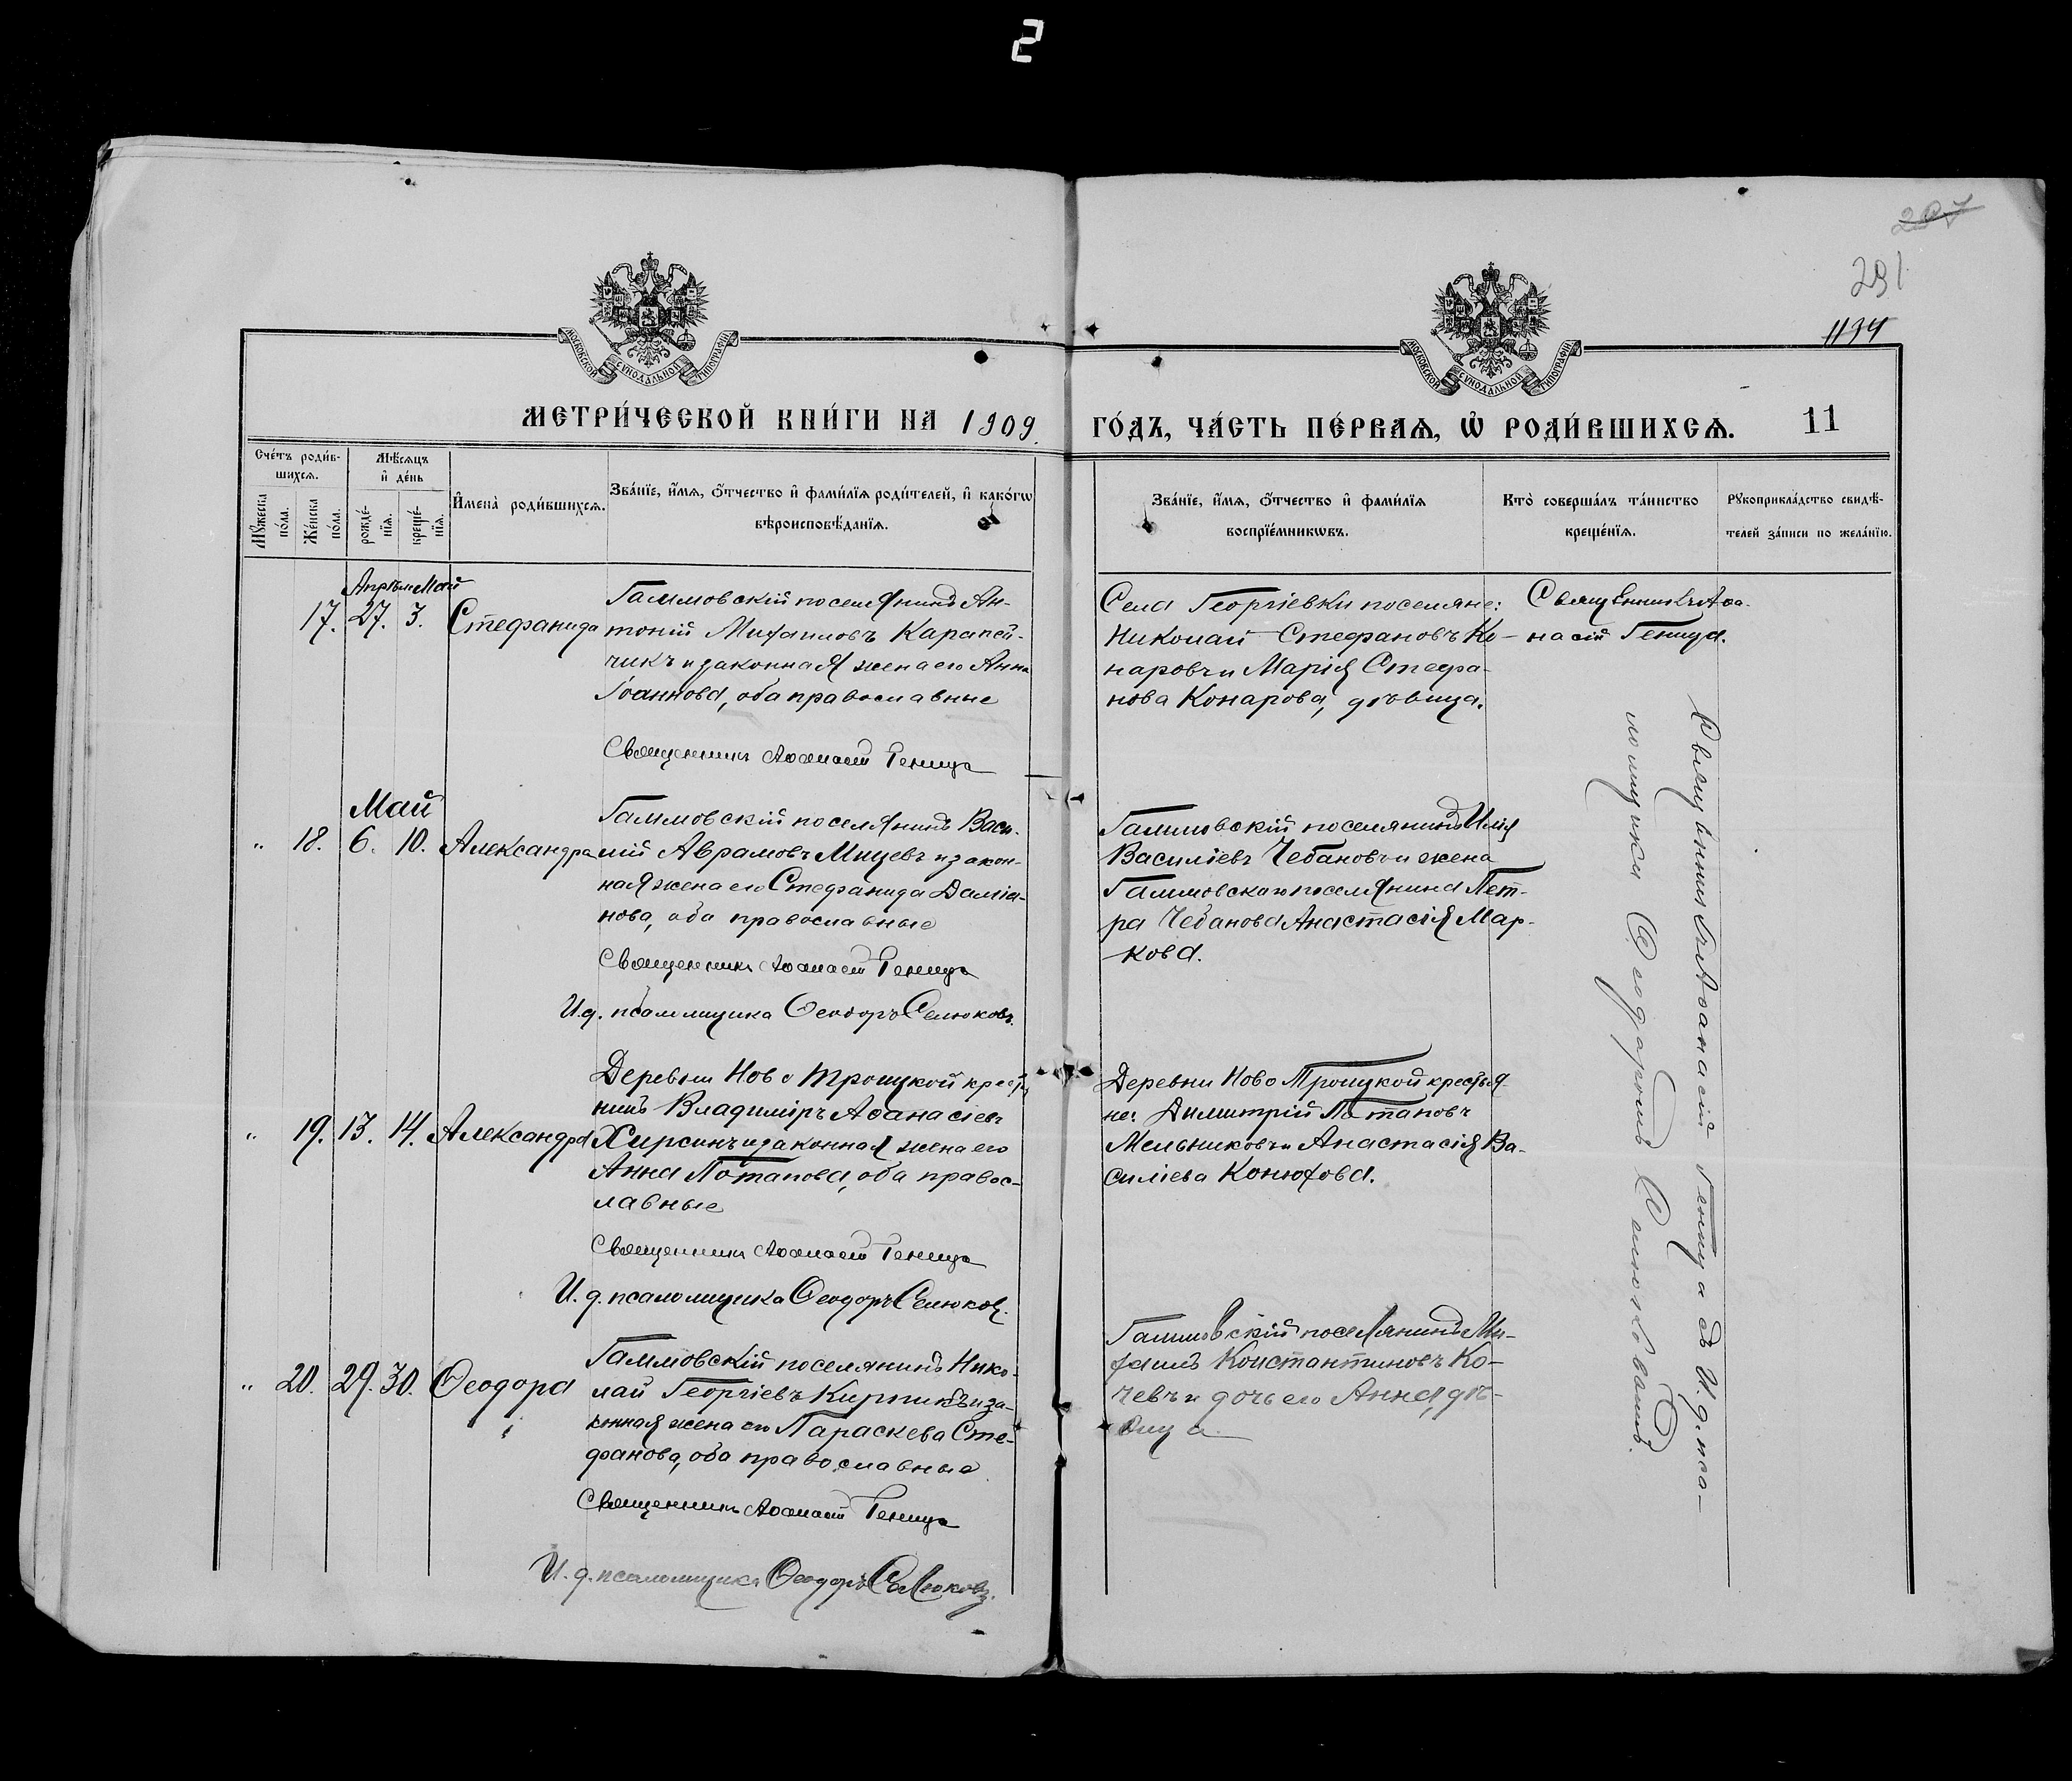 2
207
291
1134
МОСКОВСКОЙ СѴНОДАЛЬНОЙ ТИПОГРАФІИ
МОСКОВСКОЙ СѴНОДАЛЬНОЙ ТИПОГРАФІИ
МЕТРИ́ЧЕСКОЙ КНИ́ГИ НА 1909.
ГО́ДЪ, ЧА́СТЬ ПЕ́РВАЯ, Ѡ҆ РОДИ́ВШИХСЯ. 11
Сче́тъ роди́в-
шихся.
Мꙋ́жеска
по́ла.
Же́нска
по́ла.
Мѣ́сяцъ
и҆ де́нь
рожде́-
нїя.
креще́-
нїя.
И҆мена̀ роди́вшихся.
Зва́нїе, и҆́мя, ѻ҆́тчество и҆ фами́лїя роди́телей, и҆ како́гѡ
вѣроисповѣ́данїя.
Зва́нїе, и҆́мя, ѻ҆́тчество и҆ фами́лїя
воспрїе́мникѡвъ.
Кто̀ соверша́лъ та́инство
креще́нїя.
Рꙋкоприкла́дство свидѣ́-
телей за́писи по жела́нїю.
Апрѣль Май
17. 27. 3. Стефанида
Галмовскій поселянинъ Ан-
тоній Михаиловъ Карапей-
чикъ и законная жена его Анна
Іоаннова, оба православные
Священникъ Аѳанасій Геница
Села Георгіевки поселяне:
Николай Стефановъ Ко-
наровъ и Марія Стефа-
нова Конарова, дѣвица.
Священникъ Аѳа-
насій Геница.
Май
" 18. 6. 10. Александра
поселянинъ Васи-
лій Аврамовъ Мицевъ и закон-
ная жена его Стефанида Даміа-
нова, оба православные
Священникъ Аѳанасій Геница
И.д. псаломщика Ѳеодоръ Селюковъ.
поселянинъ Илія
Василіевъ Чебановъ и жена
поселянина Пет-
ра Чебанова Анастасія Мар-
кова.
" 19. 13. 14. Александра
Деревни Ново Троицкой крестья
нинъ Владиміръ Аѳанасіевъ
Хирсинъ и законная жена его
Анна Потапова, оба правос-
лавные
Священникъ Аѳанасій Геница
И.д. псаломщика Ѳеодоръ Селюковъ.
Деревни Ново Троицкой крестья
не: Димитрій Потаповъ
Мельниковъ и Анастасія Ва-
силіева Конюхова.
" 20. 29. 30. Ѳеодора
поселянинъ Нико-
лай Георгіевъ и за-
конная жена его Параскева Сте-
фанова, оба православные
Священникъ Аѳанасій Геница
И.д. псаломщика Ѳеодоръ Селюковъ.
поселянинъ Ми-
хаилъ Константиновъ Ко-
чевъ и дочь его Анна, дѣ-
вица
Священникъ Аѳанасій Геница съ И.д. пса-
ломщика Ѳеодоромъ Селюковымъ.